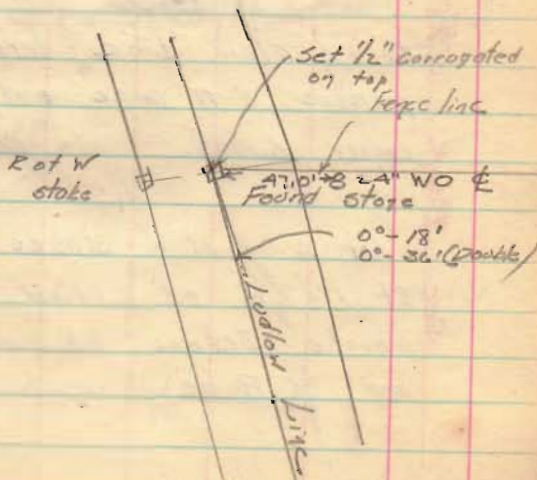 Set 1/2" corrogated
on top
Fence line
R of W
stake
WO ℄
Found stone
0°- 18'
0°- 36' (Double)
Ludlow Line